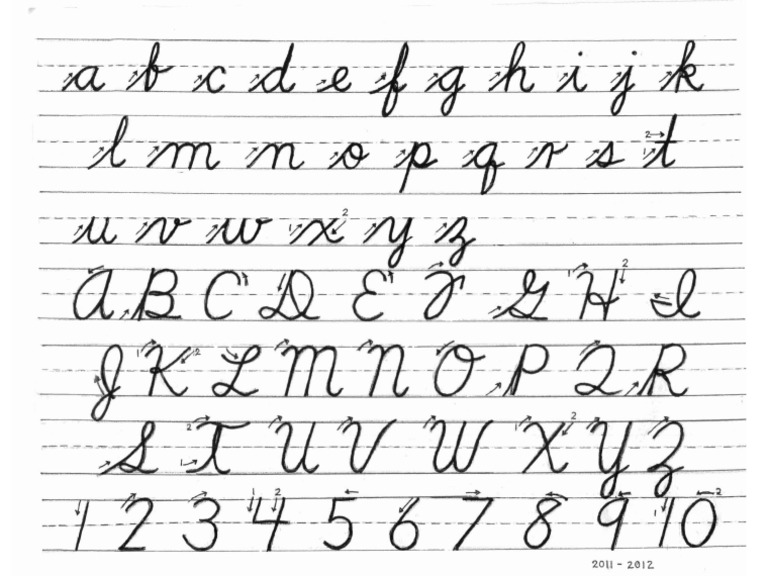 a b c d e f g h i j k
l m n o p q r s t
u v w x y z
A B C D E F G H I
J K L M N O P Q R
S T U V W X Y Z
1 2 3 4 5 6 7 8 9 10
2011 - 2012